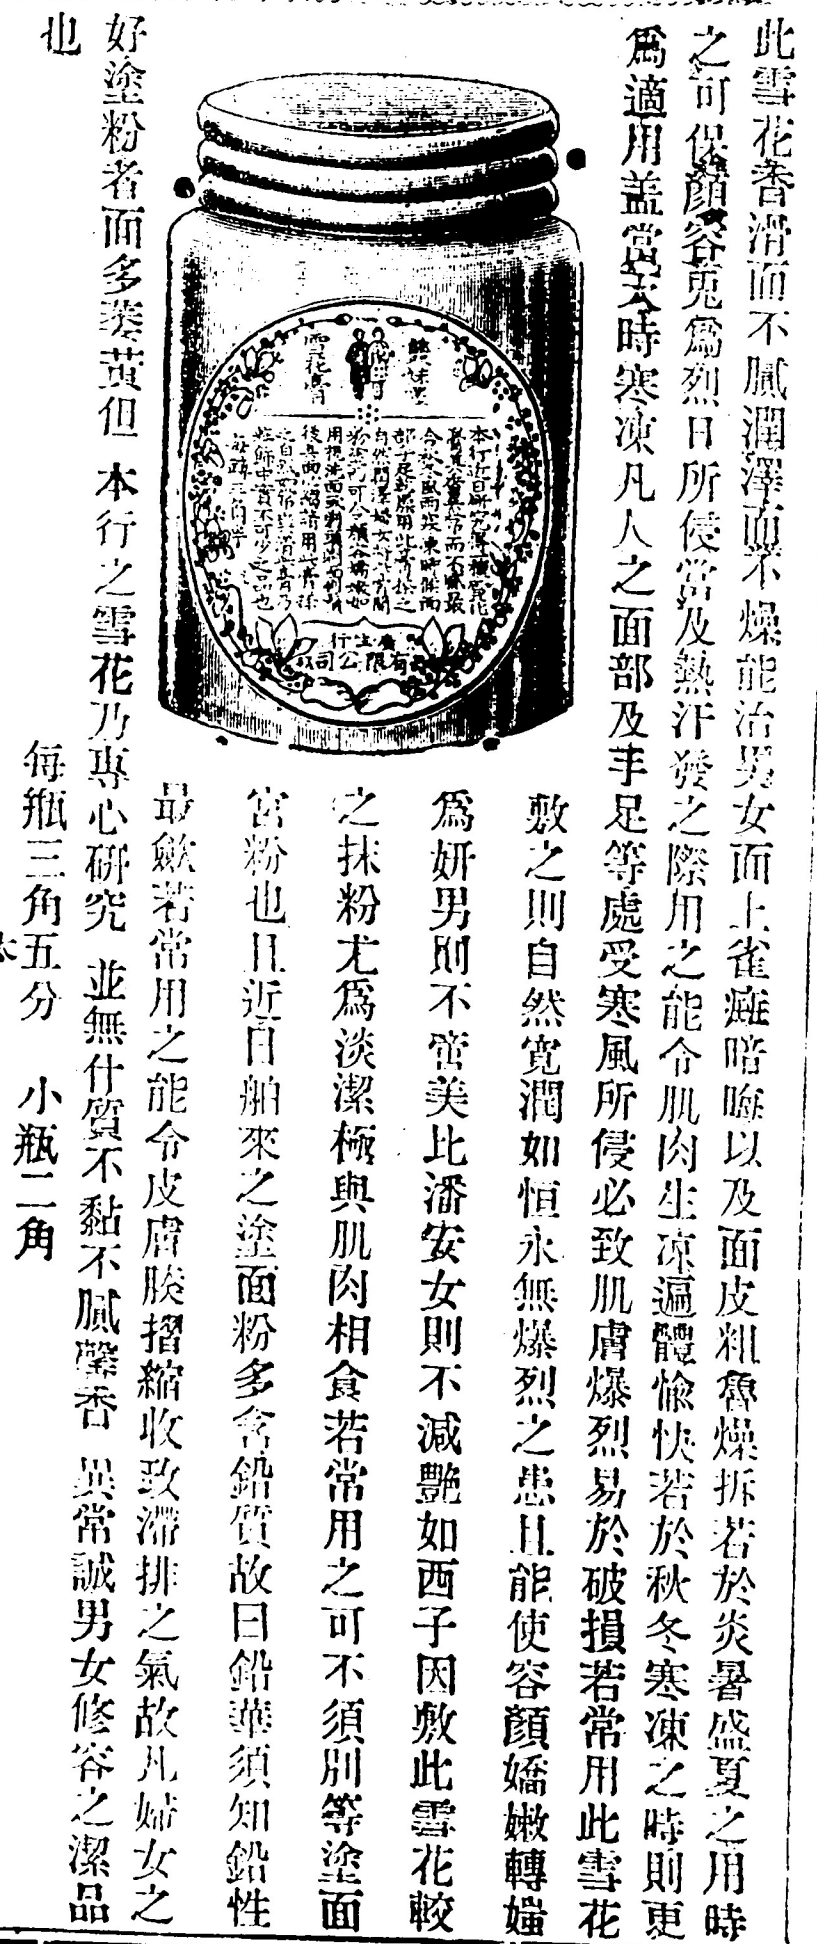 此雪花香滑而不膩潤澤而不燥能治男女面上雀癍暗晦以及面皮粗魯燥拆若於炎暑盛夏之用時
之可保顏容免爲烈日所侵當及熱汗發之際用之能令肌肉生凉遍體愉快若於秋冬寒凍之時則更
爲適用盖當天時寒凍凡人之面部及手足等處受寒風所侵必致肌膚爆烈易於破損若常用此雪花
敷之則自然寬潤如恒永無爆烈之患且能使容顏嬌嫩轉媸
爲妍男則不啻美比潘安女則不減艷如西子因敷此雪花較
之抹粉尤爲淡潔極與肌肉相食若常用之可不須別等塗面
宮粉也且近日舶來之塗面粉多含鉛質故曰鉛華須知鉛性
最歛若常用之能令皮膚腠摺縮收致滯排之氣故凡婦女之
好塗粉者面多萎黃但 本行之雪花乃專心研究 並無什質不黏不膩馨香 異常誠男女修容之潔品
也
每瓶三角五分 小瓶二角
雙妹嘜
雪花膏
本行近日研究得
每罇三角半
廣生行
有限公司